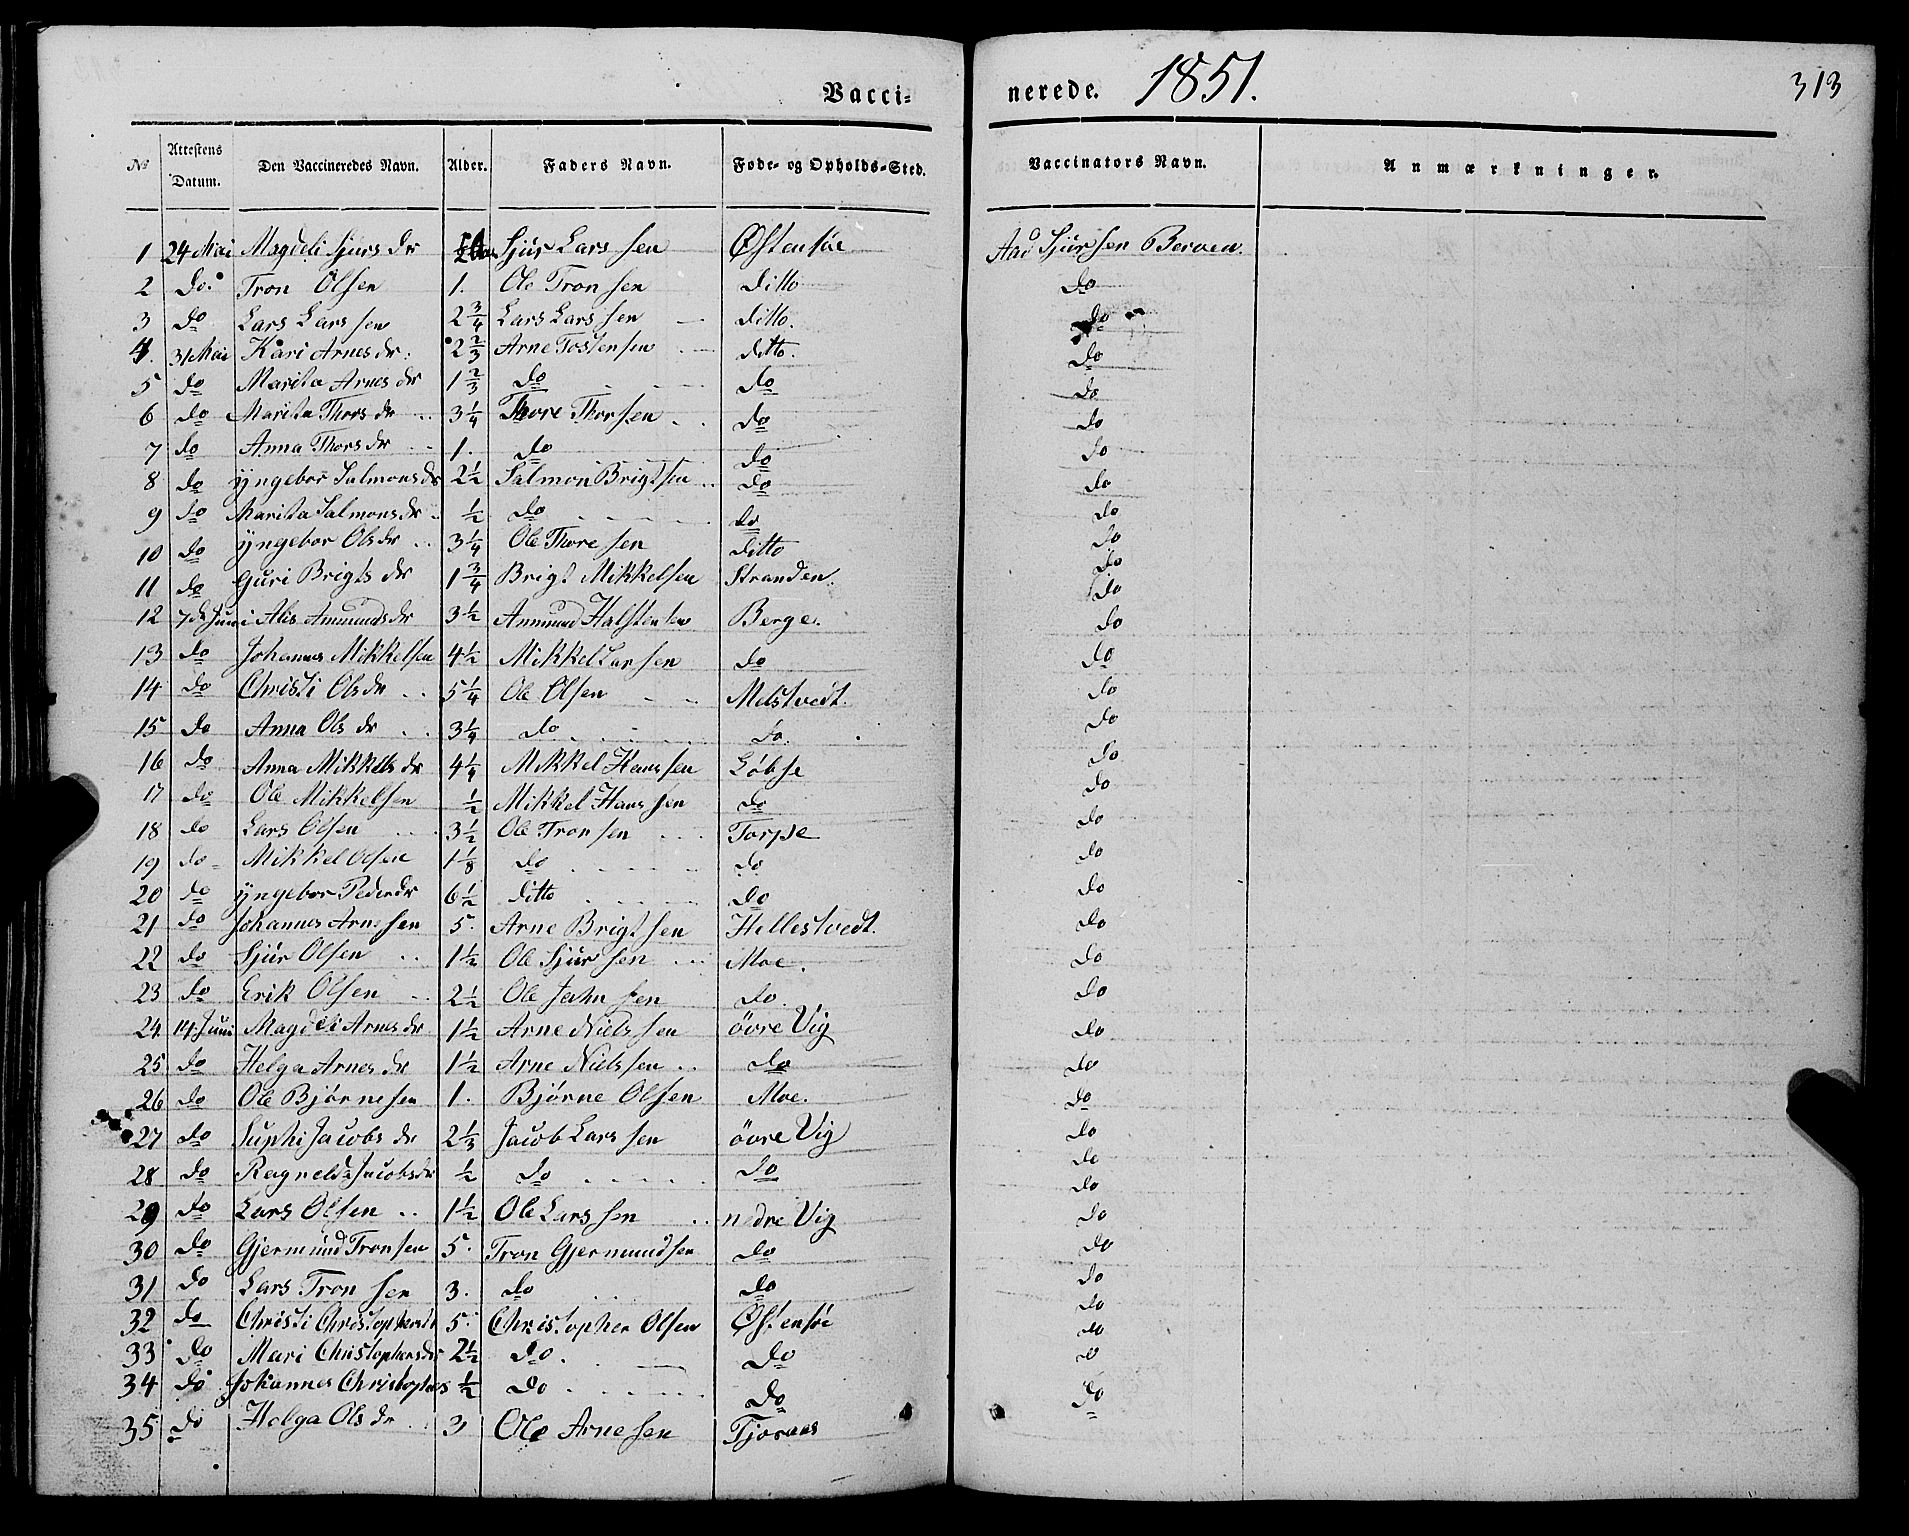 Vacci- nerede. 1851. 313
No Attestens Datum. Den Vaccineredes Navn. Alder. Faders Navn. Føde- og Opholds-Sted. Vaccinators Navn. Anmærkninger.
1 24 Mai Magdeli Sjurs dr Sjur Larssen Østensøe Aad Sjursen Berven.
2 do. Tron Olsen 1. Ole Tronsen ditto do
3 do Lars Larssen 2 3/4 Lars Larssen ditto. do
4. 31 Mai Kari Arnesdr. 2 2/3 Arne Tostensen ditto. do
5 do Marita Arnesdr 1 2/3 do do do
6 do Marita Thorsdr 3 1/4 Thore Thorsen do do
7 do Anna Thorsdr 1. do do do
8 do Yngebor Salmonsdr 2 1/2 Salmon Brigtsen do do
9 do Marita Salmonsdr 1/2 do do do
10 do Yngebor Olsdr 3 1/4 Ole Thoresen ditto do
11 do Guri Brigts dr 1 3/4 Brigt Mikkelsen Stranden. do
12 7de Juni Alis Amundsdr 3 1/2 Ammund Halstensen Berge. do
13 do Johannes Mikkelsen 4 1/2 Mikkel Larsen do do
14 do Christi Olsdr 5 1/4 Ole Olsen Melstvedt. do
15 do Anna Ols dr 3 1/4 do do. do
16 do Anna Mikkels dr 4 1/4 Mikkel Hanssen Løbse do
17 do Ole Mikkelsen 1/2 Mikkel Hanssen do do
18 do Lars Olsen 3 1/2 Ole Tronsen Torpe do
19 do Mikkel Olsen 1 1/8 do do do
20 do Yngebor Pedersdr 6 1/2 ditto do do
21 do Johannes Arnesen 5. Arne Brigtsen Hellestvedt. do
22 do Sjur Olsen 1 1/2 Ole Sjursen Moe. do
23 do Erik Olsen 2 1/2 Ole Jahnsen do. do
24 14. Juni Magdeli Arnesdr 1 1/2 Arne Nielssen øvre Vig do
25 do Helga Arnesdr 1 1/2 Arne Nielssen do do
26 do Ole Bjørnesen 1. Bjørne Olsen Moe. do
27 do Suphi Jacobs dr 2 1/3 Jacob Larssen øvre Vig do
28 do Ragnelda Jacobsdr 1/2 do do do
29 do Lars Olsen 1 1/2 Ole Larssen nedre Vig do
30 do Gjermund Tronsen 5. Tron Gjermundsen do do
31 do Lars Tronsen 3. do do do
32 do Christi Christophersdr 5. Christopher Olsen Østensøe do
33 do Mari Christophersdr 2 1/2 do. do do
34 do Johannes Christophers 1/2 do do do
35 do Helga Ols dr 3 Ole Arnesen Tjoraas do